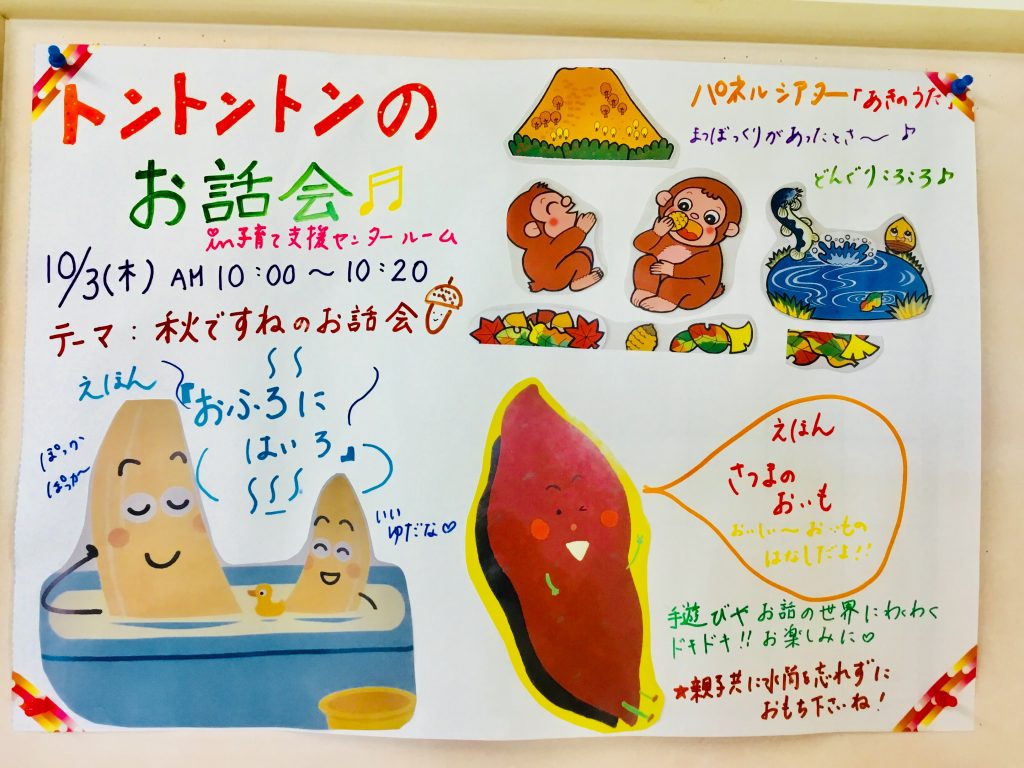 トントントンの
お話会♬
in子育て支援センタールーム
10/3(木) AM 10:00〜10:20
テーマ:秋ですねのお話会
えほん
おふろに
はいろ♪
ぽっか
ぽっか〜
いい
ゆだな♡
パネルシアター「あきのうた」
まつぼっくりがあったとさ〜♪
どんぐりころころ♪
えほん
さつまの
おいも
おいしい〜おいもの
はなしだよ!!
手遊びやお話の世界にわくわく
ドキドキ!!お楽しみに♡
★親子共に水筒を忘れずに
おもち下さいね!